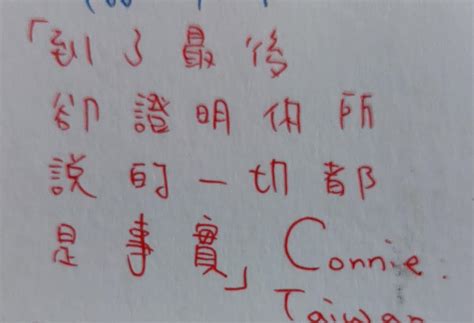 「到了最後
卻證明你所
說的一切都
是事實」 Connie.
Taiwan